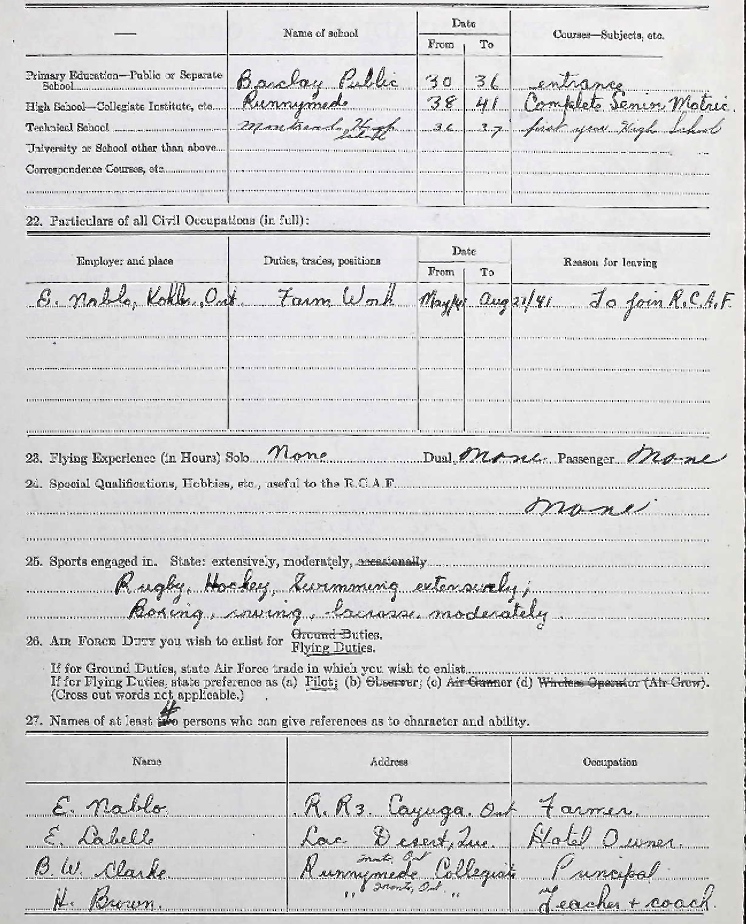 — Name of school Date Courses—Subjects, etc.
From To
Primary Education—Public or Separate School Barclay Public 30 36 entrance
High School—Collegiate Institute, etc. Runnymede 38 41 Complete Senior Matric.
Technical School Montreal High 36 37 first year High School
University or School other than above
Correspondence Courses, etc.
22. Particulars of all Civil Occupations (in full):
Employer and place Duties, trades, positions Date Reason for leaving
From To
E. Nablo, Kohler, Ont. Farm Work May/41 Aug 21/41 To join R.C.A.F.
23. Flying Experience (in Hours) Solo None Dual None Passenger None
24. Special Qualifications, Hobbies, etc., useful to the R.C.A.F.
None
25. Sports engaged in. State: extensively, moderately, occasionally
Rugby, Hockey, Swimming extensively;
Boxing, rowing, lacrosse, moderately.
26. AIR FORCE DUTY you wish to enlist for Ground Duties.
Flying Duties.
If for Ground Duties, state Air Force trade in which you wish to enlist
If for Flying Duties, state preference as (a) Pilot; (b) Observer; (c) Air Gunner (d) Wireless Operator (Air Crew).
(Cross out words not applicable.)
4
27. Names of at least two persons who can give references as to character and ability.
Name Address Occupation
E. Nablo R. R3. Cayuga. Ont Farmer.
E. Labelle Lac Desert, Que. Hotel Owner.
B. W. Clarke. Runnymede Collegiate Principal
H. Brown. " " " Teacher + coach.